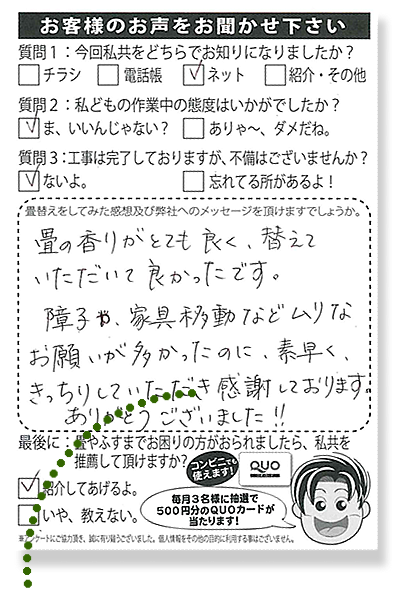 お客様のお声をお聞かせ下さい
質問1：今回私共をどちらでお知りになりましたか？
チラシ 電話帳 ネット 紹介・その他
質問2：私どもの作業中の態度はいかがでしたか？
ま、いいんじゃない？ ありゃ〜、ダメだね。
質問3：工事は完了しておりますが、不備はございませんか？
ないよ。 忘れてる所があるよ！
畳替えをしてみた感想及び弊社へのメッセージを頂けますでしょうか。
畳の香りがとても良く、替えて
いただいて良かったです。
障子や、家具移動などムリな
お願いが多かったのに、素早く、
きっちりしていただき感謝しております。
ありがとうございました!!
最後に：畳やふすまでお困りの方がおられましたら、私共を
推薦して頂けますか？
コンビニでも
使えます！
QUO
紹介してあげるよ。
いや、教えない。
毎月3名様に抽選で
500円分のQUOカードが
当たります！
※アンケートにご協力頂き、誠に有り難うございました。個人情報をその他の目的に利用する事はございません。